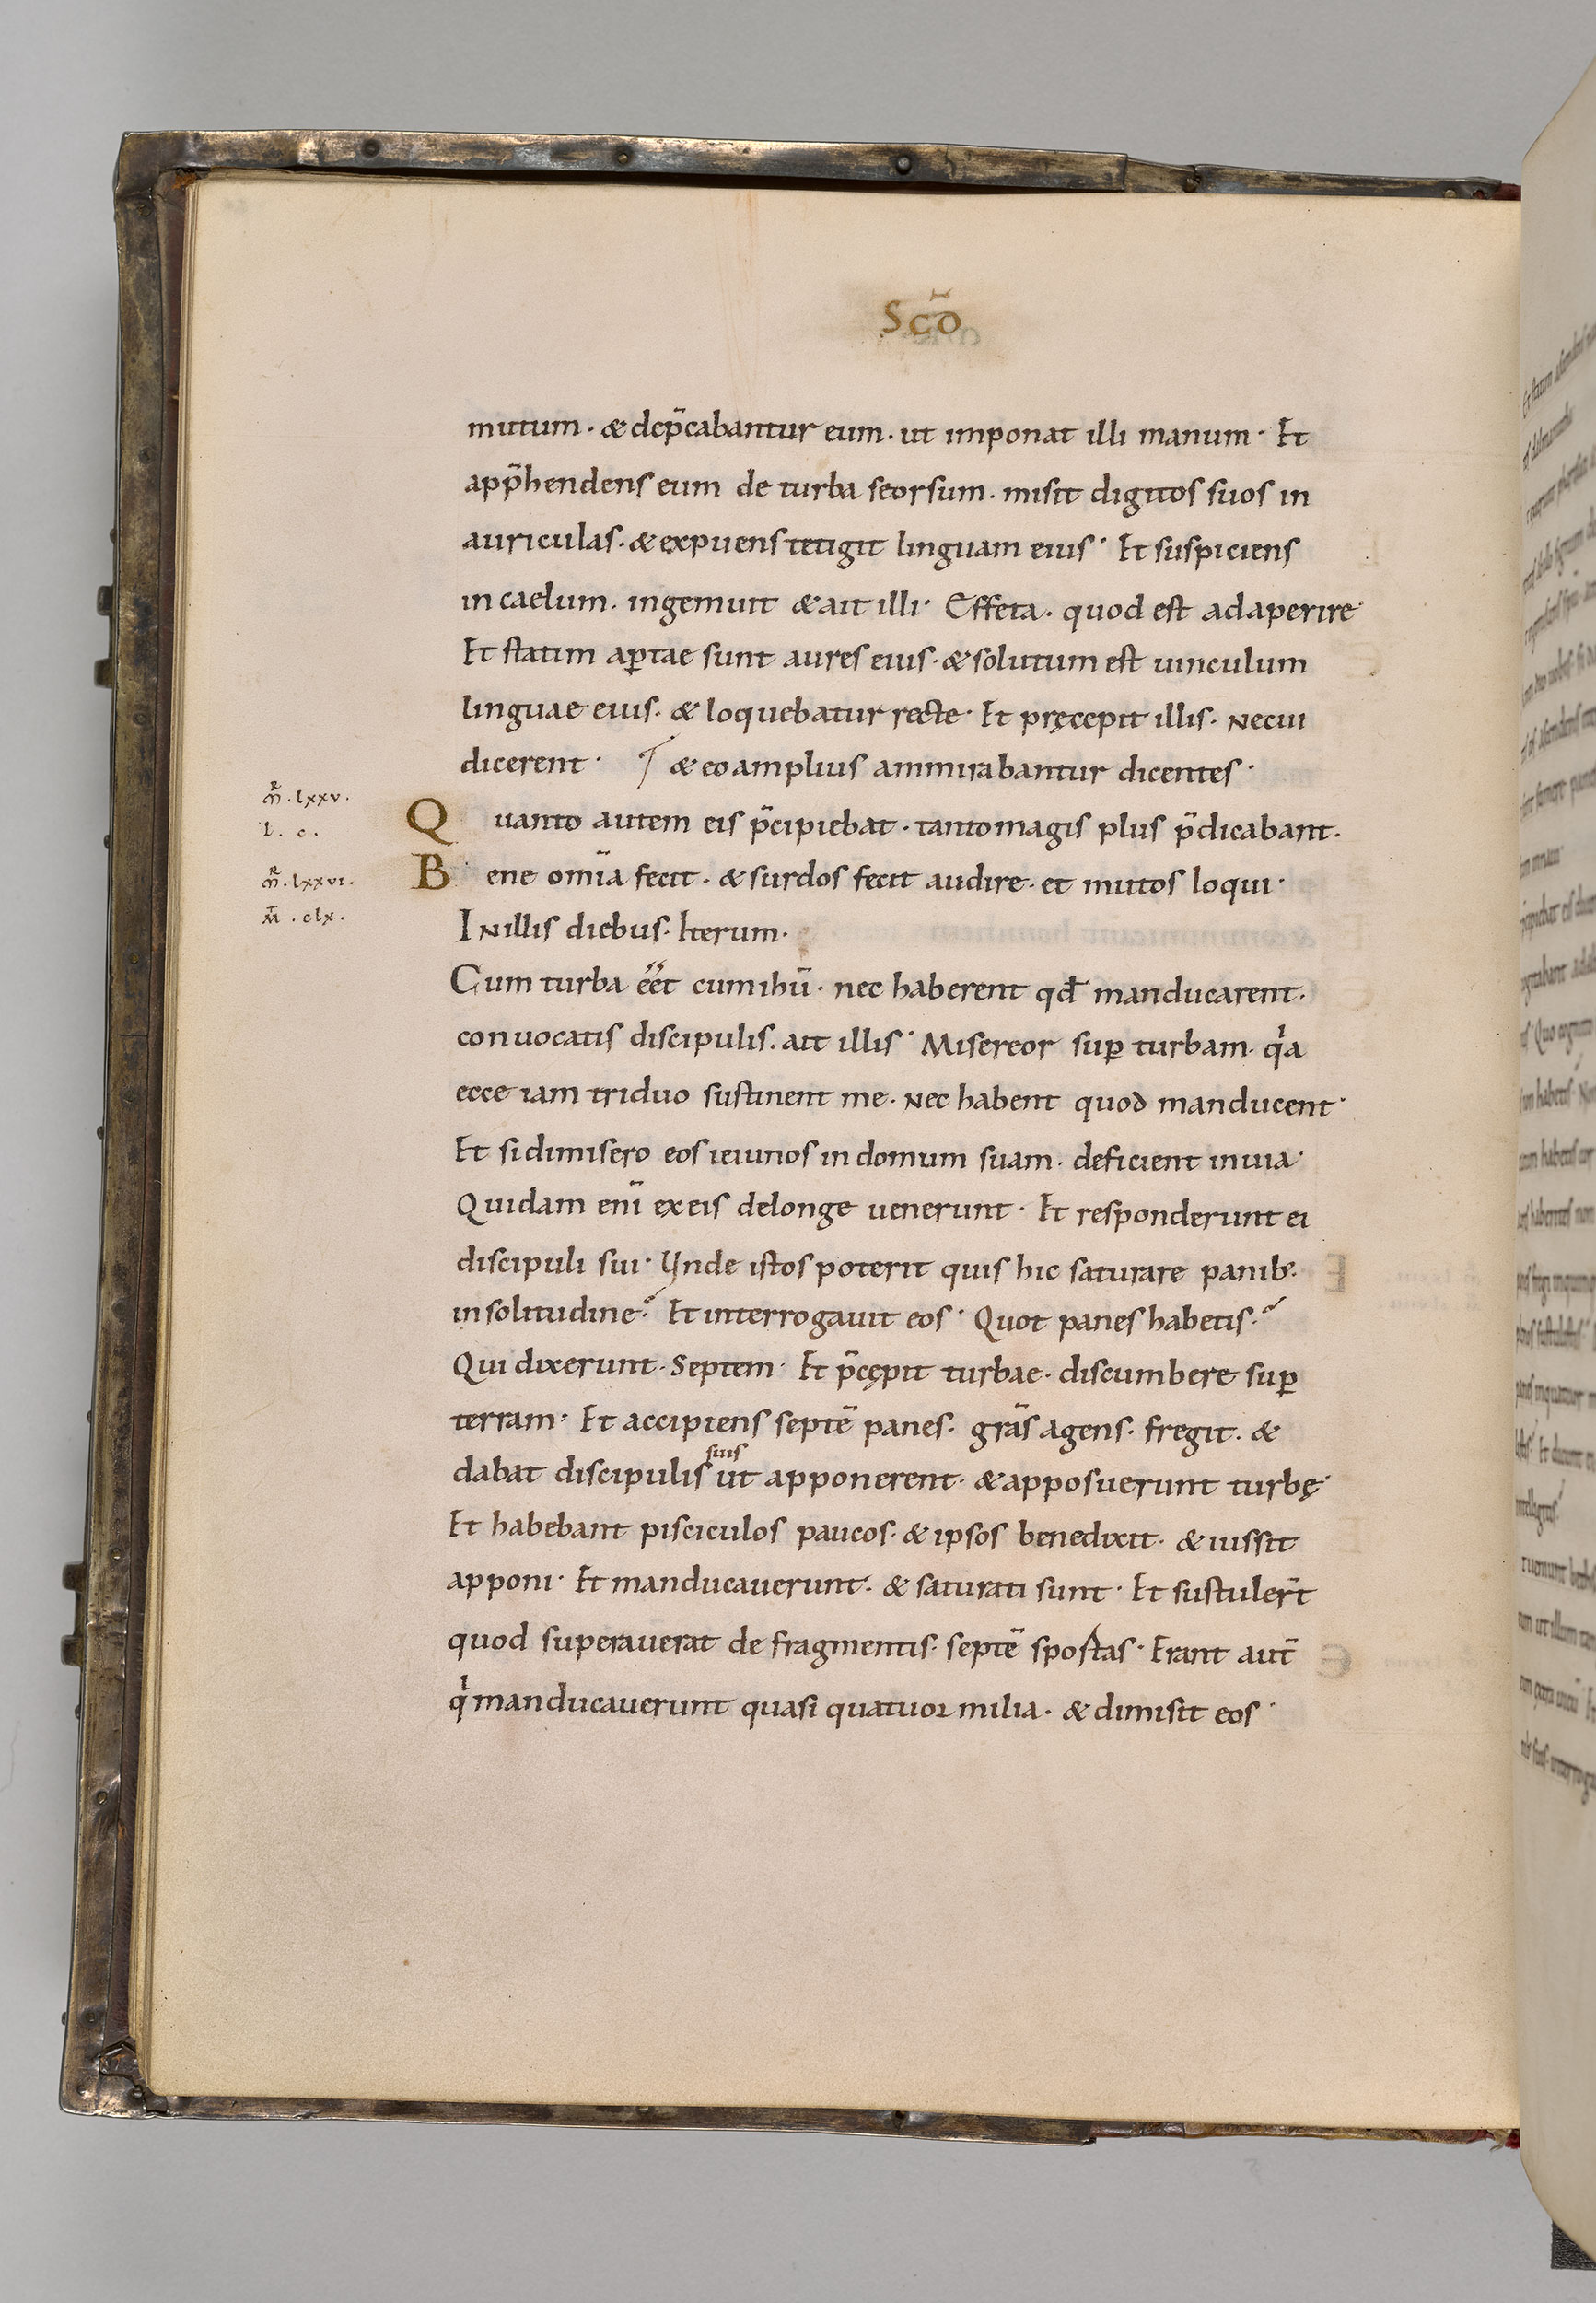 Scõ
mutum · & dep̃cabantur eum · ut imponat illi manum · Et
app̃hendens eum de turba seorsum · misit digitos suos in
auriculas · & expuens tetigit linguam eius · Et suspiciens
in caelum · ingemuit & ait illi · Effeta · quod est adaperire ·
Et statim aꝑtae sunt aures eius · & solutum est uinculum
linguae eius · & loquebatur recte · Et pręcepit illis · ne cui
dicerent · & eo amplius ammirabantur dicentes ·
m̃r · lxxv ·
l · c ·
Quanto autem eis p̃cipiebat · tanto magis plus p̃dicabant ·
m̃r · lxxvi ·
m̃ · clx ·
Bene omĩa fecit · & surdos fecit audire · et mutos loqui ·
In illis diebus · Iterum ·
Cum turba eet cum ihũ · nec haberent qđ manducarent ·
conuocatis discipulis · ait illis · Misereor suꝑ turbam · qia
ecce iam triduo sustinent me · nec habent quod manducent ·
Et si dimisero eos ieiunos in domum suam · deficient in uia ·
Quidam enĩ ex eis de longe uenerunt · Et responderunt ei
discipuli sui · Unde istos poterit quis hic saturare panib; ·
in solitudine? Et interrogauit eos · Quot panes habetis?
Qui dixerunt · Septem · Et p̃cępit turbae · discumbere suꝑ
terram · Et accipiens septẽ panes · grãs agens · fregit · &
dabat discipulis suis ut apponerent · & apposuerunt turbę ·
Et habebant pisciculos paucos · & ipsos benedixit · & iussit
apponi · Et manducauerunt · & saturati sunt · Et sustuler̃t
quod superauerat de fragmentis · septẽ sportas · Erant aut̃
qi manducauerunt quasi quatuor milia · & dimisit eos ·